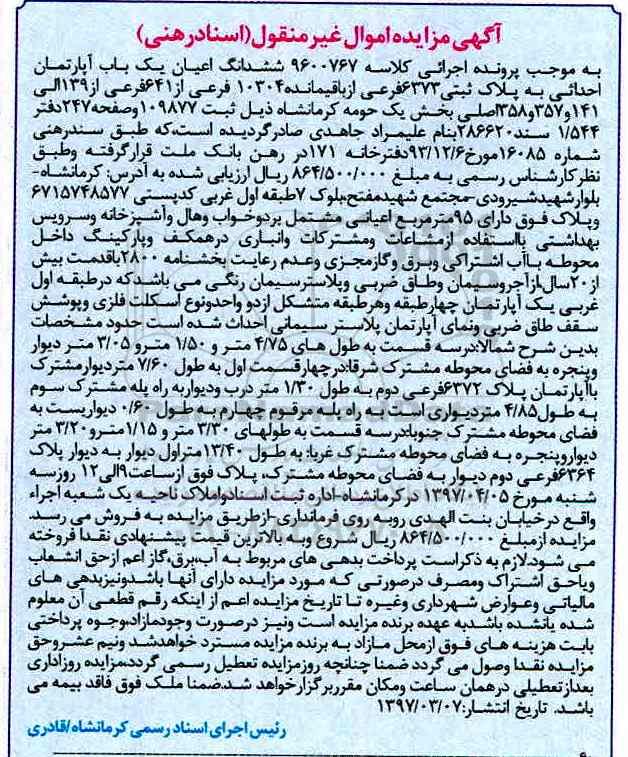 آگهی مزایده اموال غیر منقول (اسناد رهنی)
به موجب پرونده اجرائی کلاسه ۹۶۰۰۷۶۷ ششدانگ اعیان یک باب آپارتمان
احداثی به پلاک ثبتی۶۳۷۳فرعی ازباقیمانده۱۰۳۰۴ فرعی از۶۴۱فرعی از۱۳۹الی
۱۴۱و۳۵۷و۳۵۸اصلی بخش یک حومه کرمانشاه ذیل ثبت ۱۰۹۸۷۷وصفحه۲۴۷دفتر
۱/۵۴۴ سند۲۸۶۶۲۰بنام علیمراد جاهدی صادرگردیده است،که طبق سندرهنی
شماره ۱۶۰۸۵مورخ۹۳/۱۲/۶دفترخانه ۱۷۱در رهن بانک ملت قرارگرفته وطبق
نظرکارشناس رسمی به مبلغ ۸۶۴/۵۰۰/۰۰۰ ریال ارزیابی شده به آدرس: کرمانشاه-
بلوارشهیدشیرودی-مجتمع شهیدمفتح،بلوک ۷طبقه اول غربی کدپستی ۶۷۱۵۷۴۸۵۷۷
وپلاک فوق دارای ۹۵مترمربع اعیانی مشتمل بردوخواب وهال وآشپزخانه وسرویس
بهداشتی بااستفاده ازمشاعات ومشترکات وانباری درهمکف وپارکینگ داخل
محوطه باآب اشتراکی وبرق وگازمجزی وعدم رعایت بخشنامه ۲۸۰۰باقدمت بیش
از۲۰سال،ازآجروسیمان وطاق ضربی وپلاسترسیمان رنگی می باشدکه درطبقه اول
غربی یک آپارتمان چهارطبقه وهرطبقه متشکل ازدو واحدونوع اسکلت فلزی وپوشش
سقف طاق ضربی ونمای آپارتمان پلاستر سیمانی احداث شده است حدود مشخصات
بدین شرح شمالا:درسه قسمت به طول های ۴/۷۵ متر و ۱/۵۰ مترو ۳/۰۵ متر دیوار
وپنجره به فضای محوطه مشترک شرقا:درچهارقسمت اول به طول ۷/۶۰ متردیوارمشترک
باآپارتمان پلاک ۶۳۷۲فرعی دوم به طول ۱/۳۰ متر درب ودیواربه راه پله مشترک سوم
به طول۴/۸۵ متردیواری است به راه پله مرقوم چهارم به طول ۰/۶۰ دیواریست به
فضای محوطه مشترک جنوبا:درسه قسمت به طولهای ۳/۳۰ متر و ۱/۱۵مترو۳/۲۰ متر
دیواروپنجره به فضای محوطه مشترک غربا: به طول ۱۳/۴۰متراول دیوار به دیوار پلاک
۶۳۶۴فرعی دوم دیوار به فضای محوطه مشترک، پلاک فوق ازساعت۹الی۱۲ روزسه
شنبه مورخ ۱۳۹۷/۰۴/۰۵ درکرمانشاه-اداره ثبت اسنادواملاک ناحیه یک شعبه اجراء
واقع درخیابان بنت الهدی روبه روی فرمانداری-ازطریق مزایده به فروش می رسد.
مزایده ازمبلغ ۸۶۴/۵۰۰/۰۰۰ ریال شروع وبه بالاترین قیمت پیشنهادی نقدا فروخته
می شود.لازم به ذکراست پرداخت بدهی های مربوط به آب،برق،گاز اعم ازحق انشعاب
ویاحق اشتراک ومصرف درصورتی که مورد مزایده دارای آنها باشدونیزبدهی های
مالیاتی وعوارض شهرداری وغیره تا تاریخ مزایده اعم از اینکه رقم قطعی آن معلوم
شده یانشده باشدبه عهده برنده مزایده است ونیز درصورت وجودمازاد،وجوه پرداختی
بابت هزینه های فوق ازمحل مازاد به برنده مزایده مسترد خواهدشد ونیم عشروحق
مزایده نقدا وصول می گردد ضمنا چنانچه روزمزایده تعطیل رسمی گردد،مزایده روزاداری
بعدازتعطیلی درهمان ساعت ومکان مقرربرگزارخواهد شد.ضمنا ملک فوق فاقد بیمه می
باشد. تاریخ انتشار:۱۳۹۷/۰۳/۰۷
رئیس اجرای اسناد رسمی کرمانشاه/قادری